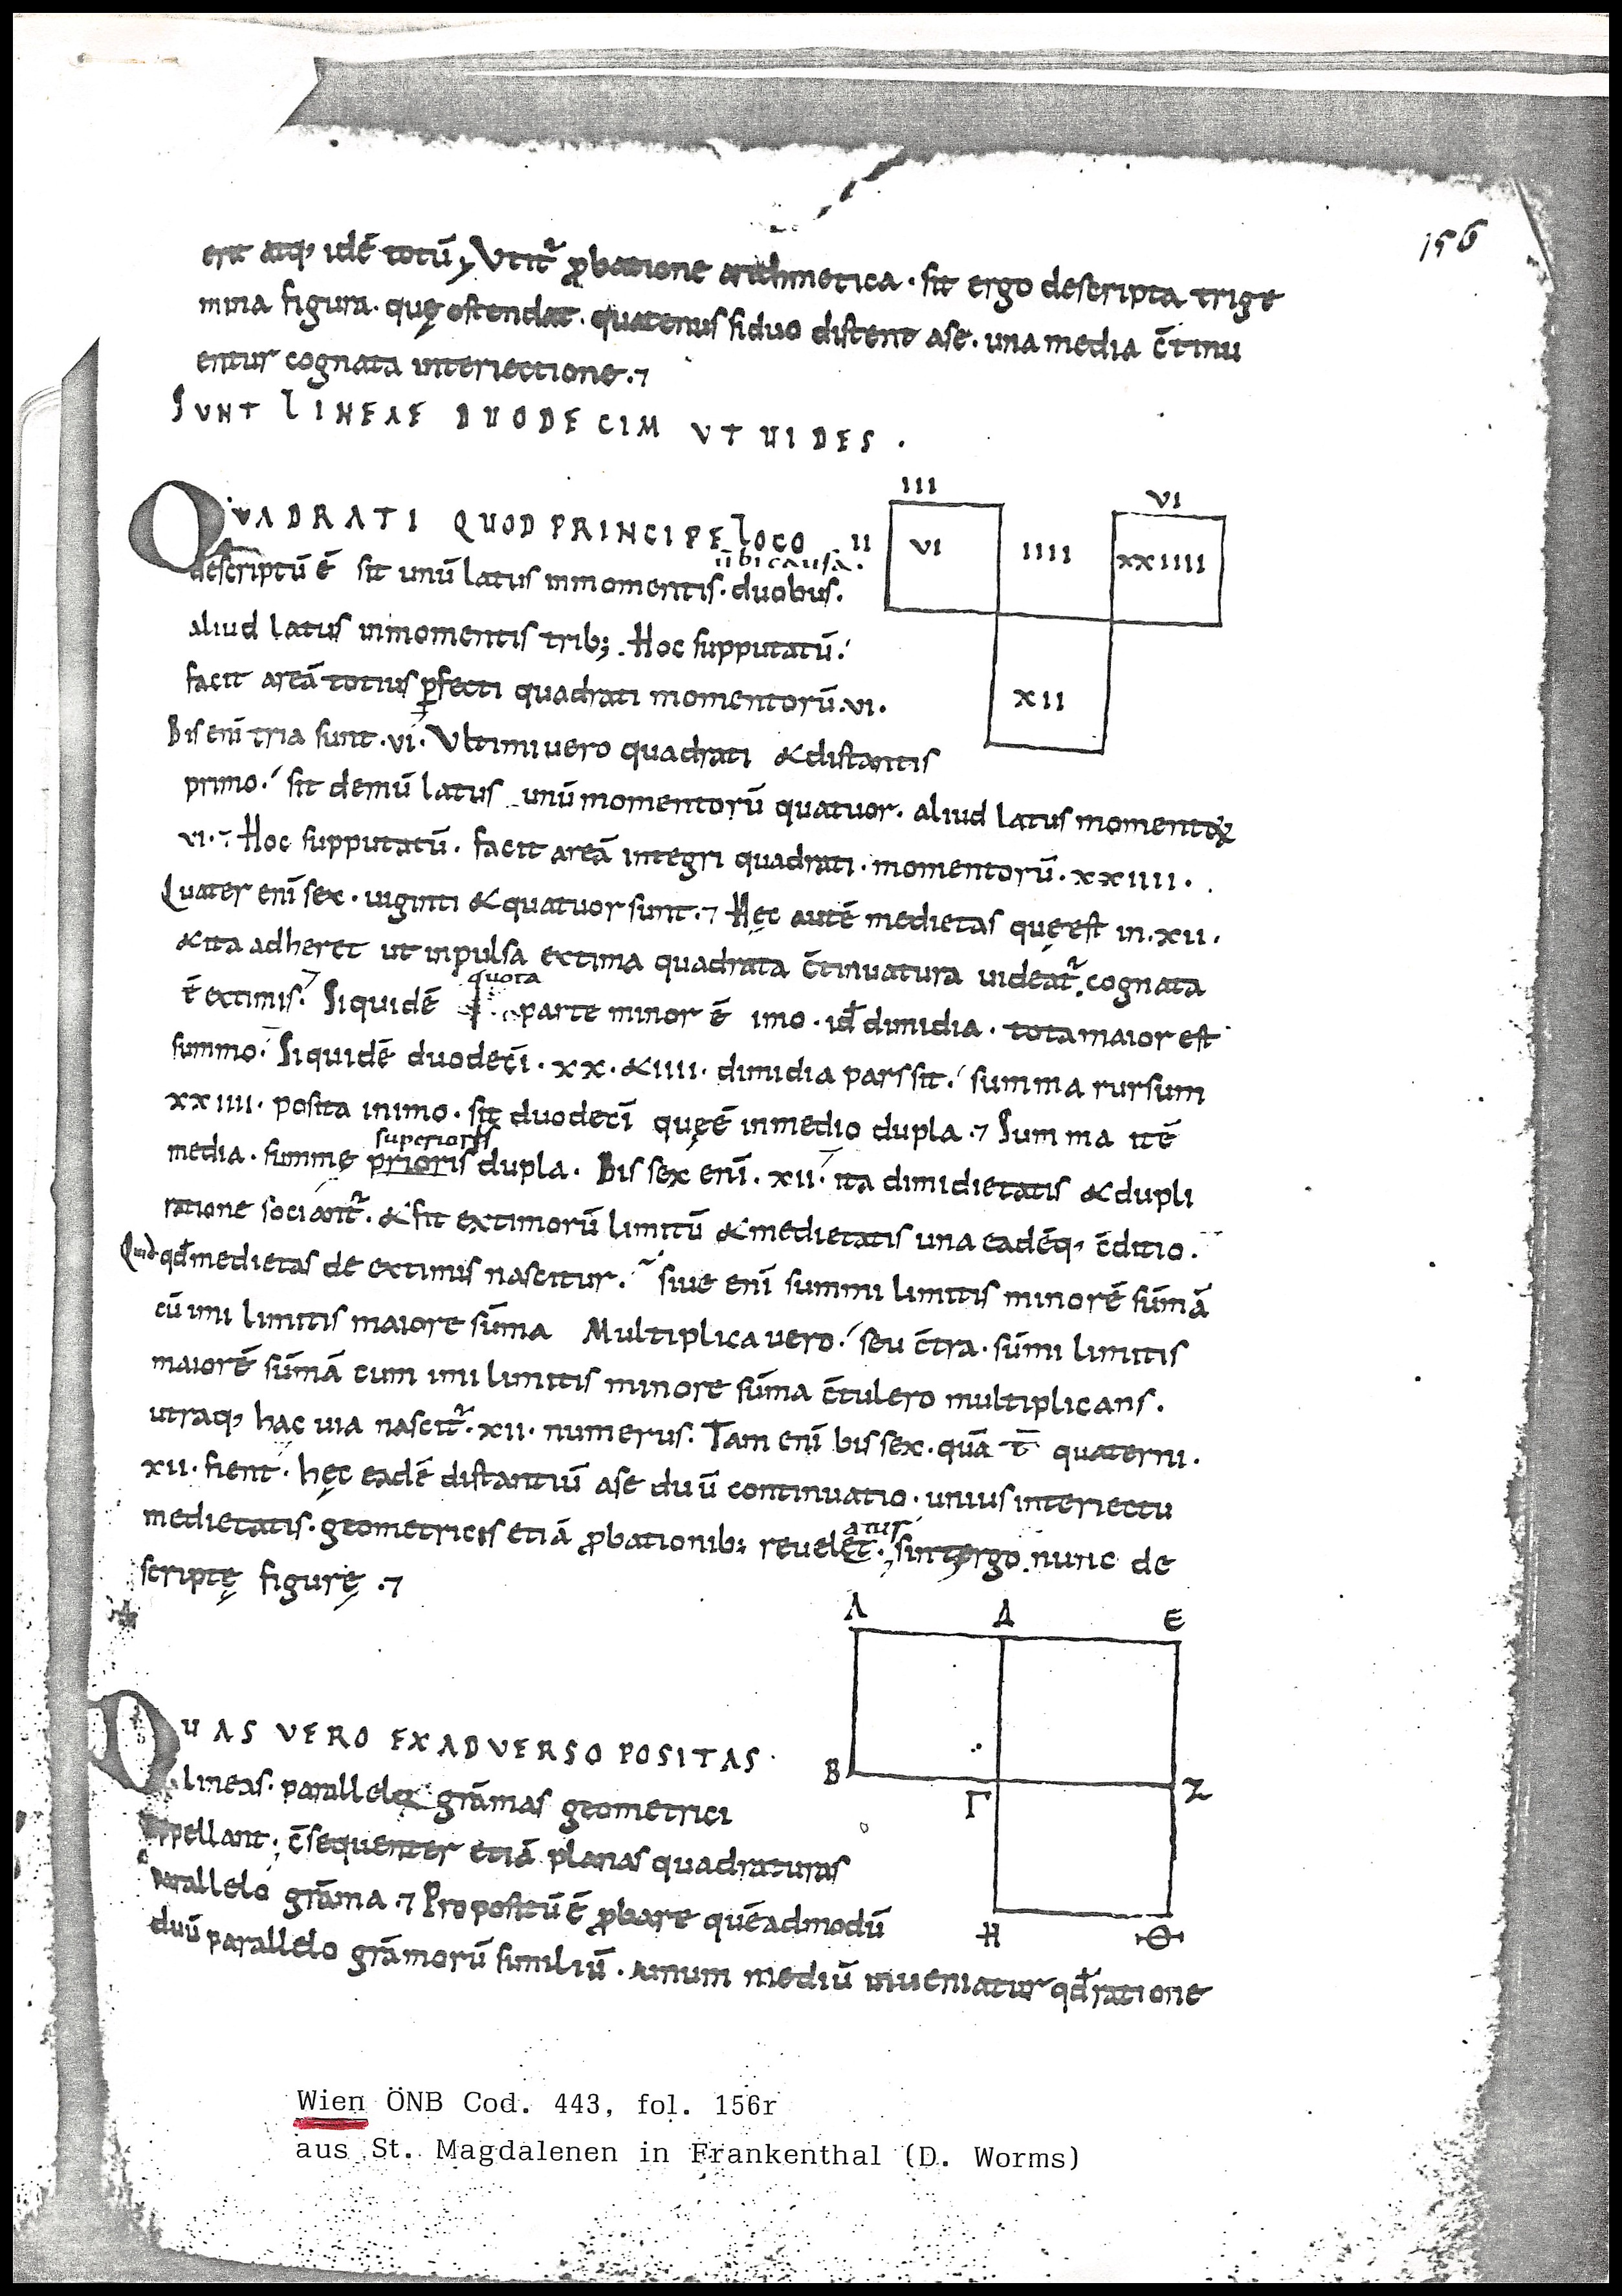 156
erit atq; idē totū; Vtit᷑ ꝓbatione arithmetica · sit ergo descripta trige
sima figura · quę ostendat · quatenus si duo distent a se · una media c̄tinu
entur cognata interiectione .⁊
SVNT LINEAE DUODECIM VT UIDES .
III
VI
QVADRATI QUOD PRINCIPE LOCO
II
VI
IIII
XXIIII
ubi causa.
descriptū ē sit unū latus in momentis · duobus .
aliud latus in momentis trib; . Hoc supputatū .
facit areā totius ꝑfecti quadrati momentorū · vi ·
XII
Bis enī tria sunt · vi · Vltimi uero quadrati & distantis
primo · sit demū latus unū momentorū quatuor · aliud latus momentoꝝ
vi · Hoc supputatū · facit areā integri quadrati · momentorū · xxiiii ·
Quater enī sex · uiginti & quatuor sunt .⁊ Hęc autē medietas quę est in · xii ·
& ita adheret ut inpulsa extima quadrata c̄tinuatura uideat᷑ · cognata
quota
ē extimis · Siquidē parte minor ē imo · id̄ dimidia · tota maior est
summo · Siquidē duodecī · xx · & iiii · dimidia pars sit · summa rursum
xxiiii · posita in imo · sit duodecī quę ē in medio dupla .⁊ Summa itē
superioris
media · summe prioris dupla · Bis sex enī · xii · ita dimidietatis & dupli
ratione sociant᷑ · & sit extimorū limitū & medietatis una eadēq; c̄ditio .
Quid qd̄ medietas de extimis nascitur · siue enī summi limitis minorē sūmā
cū imi limitis maiore sūma Multiplica uero · seu c̄tra · sūmi limitis
maiorē sūmā cum imi limitis minore sūma c̄tulero multiplicans .
utraq; hac uia nascit᷑ · xii · numerus . Tam enī bis sex · quā t̄ quaterni ·
xii · fient · hęc eadē distantiū a se duū continuatio · unius interiectu
atur
medietatis · geometricis etiā ꝓbationib; reuelet · sint ergo nunc de
scriptę figurę .⁊
Α Δ Ε
QUAS VERO EX ADVERSO POSITAS
Β Γ Ζ
lineas · parallelo grāmas geometrici
appellant ; c̄sequenter etiā planas quadraturas
parallelo grāma .⁊ Propositū ē ꝓbare quēadmodū
Η Θ
duū parallelo grāmorū similiū · unum mediū inueniatur qd̄ ratione
Wien ÖNB Cod. 443, fol. 156r
aus St. Magdalenen in Frankenthal (D. Worms)